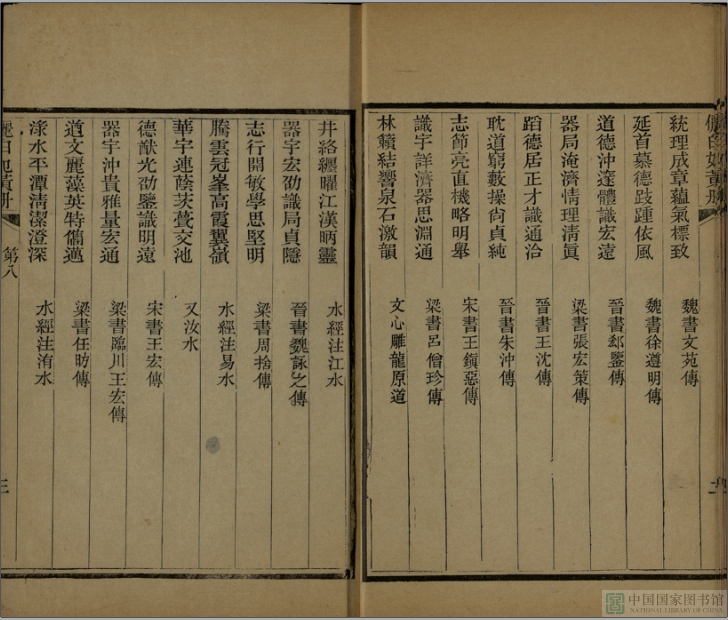 統理成章蘊氣標致 魏書文苑傳
延首慕德跂踵依風 魏書徐遵明傳
道德沖邃體識宏遠 晉書郄鑒傳
器局淹濟情理清眞 梁書張宏策傳
蹈德居正才識通洽 晉書王沈傳
耽道窮藪操尚貞純 晉書朱沖傳
志節亮直機略明舉 宋書王鎭惡傳
識宇詳濟器思淵通 梁書呂僧珍傳
林籟結響泉石激韻 文心雕龍原道
井絡纒曜江漢昞靈 水經注江水
器宇宏劭識局貞隱 晉書魏詠之傳
志行開敏學思堅明 梁書周捨傳
騰雲冠峯高霞翼嶺 水經注易水
華宇連蔭茨甍交池 又汝水
德猷光劭鑒識明遠 宋書王宏傳
器宇沖貴雅量宏通 梁書臨川王宏傳
道文麗藻英特儁邁 梁書任昉傳
淥水平潭清潔澄深 水經注洧水
第八
三
中国国家图书馆
NATIONAL LIBRARY OF CHINA